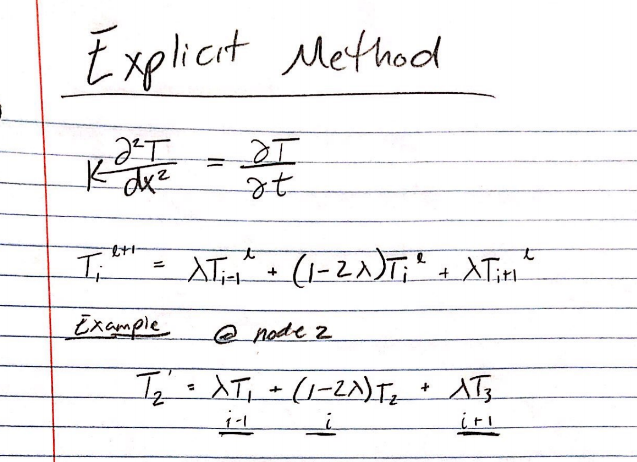 Explicit Method
K ∂²T/dx² = ∂T/∂t
Tᵢ^(l+1) = λTᵢ₋₁^l + (1-2λ)Tᵢ^l + λTᵢ₊₁^l
Example @ node 2
T₂' = λT₁ + (1-2λ)T₂ + λT₃
i-1 i i+1